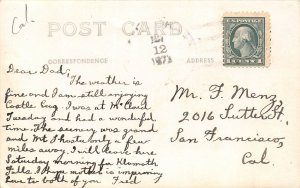 Cal.
POST CARD
CORRESPONDENCE
ADDRESS
12
U.S. POSTAGE
1 CENT 1
Dear Dad,
The weather is
fine and I am still enjoying
Castle Crag. I was at McCloud
Tuesday and had a wonderful
time. The scenery was grand
and Mt Shasta only a few
miles away. I will leave here
Saturday morning for Klamath
Falls. I hope mother is improving
Love to both of you. Fred
Mr. F. Menz
2016 Sutter St.
San Francisco,
Cal.